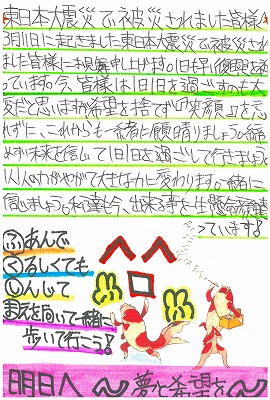 東日本大震災で被災されました皆様へ
3月11日に起きました東日本大震災で被災され
ました皆様にお見舞申し上げます。1日も早い復興を祈
っています。今、皆様は1日1日を過ごすのも大
変だと思いますが希望を捨てず『笑顔』を忘
れずに、これからも一緒に頑晴りましょう。諦
めずに未来を信じて1日1日を過ごして行きましょう。
1人1人のかがやきが大きな力に変わります。一緒に
信じましょう。私達も今、出来る事を一生懸命頑張
っています!
ふあんで
くるしくても
しんじて
まえを向いて一緒に
歩いて行こう!
明日へ〜夢と希望を〜